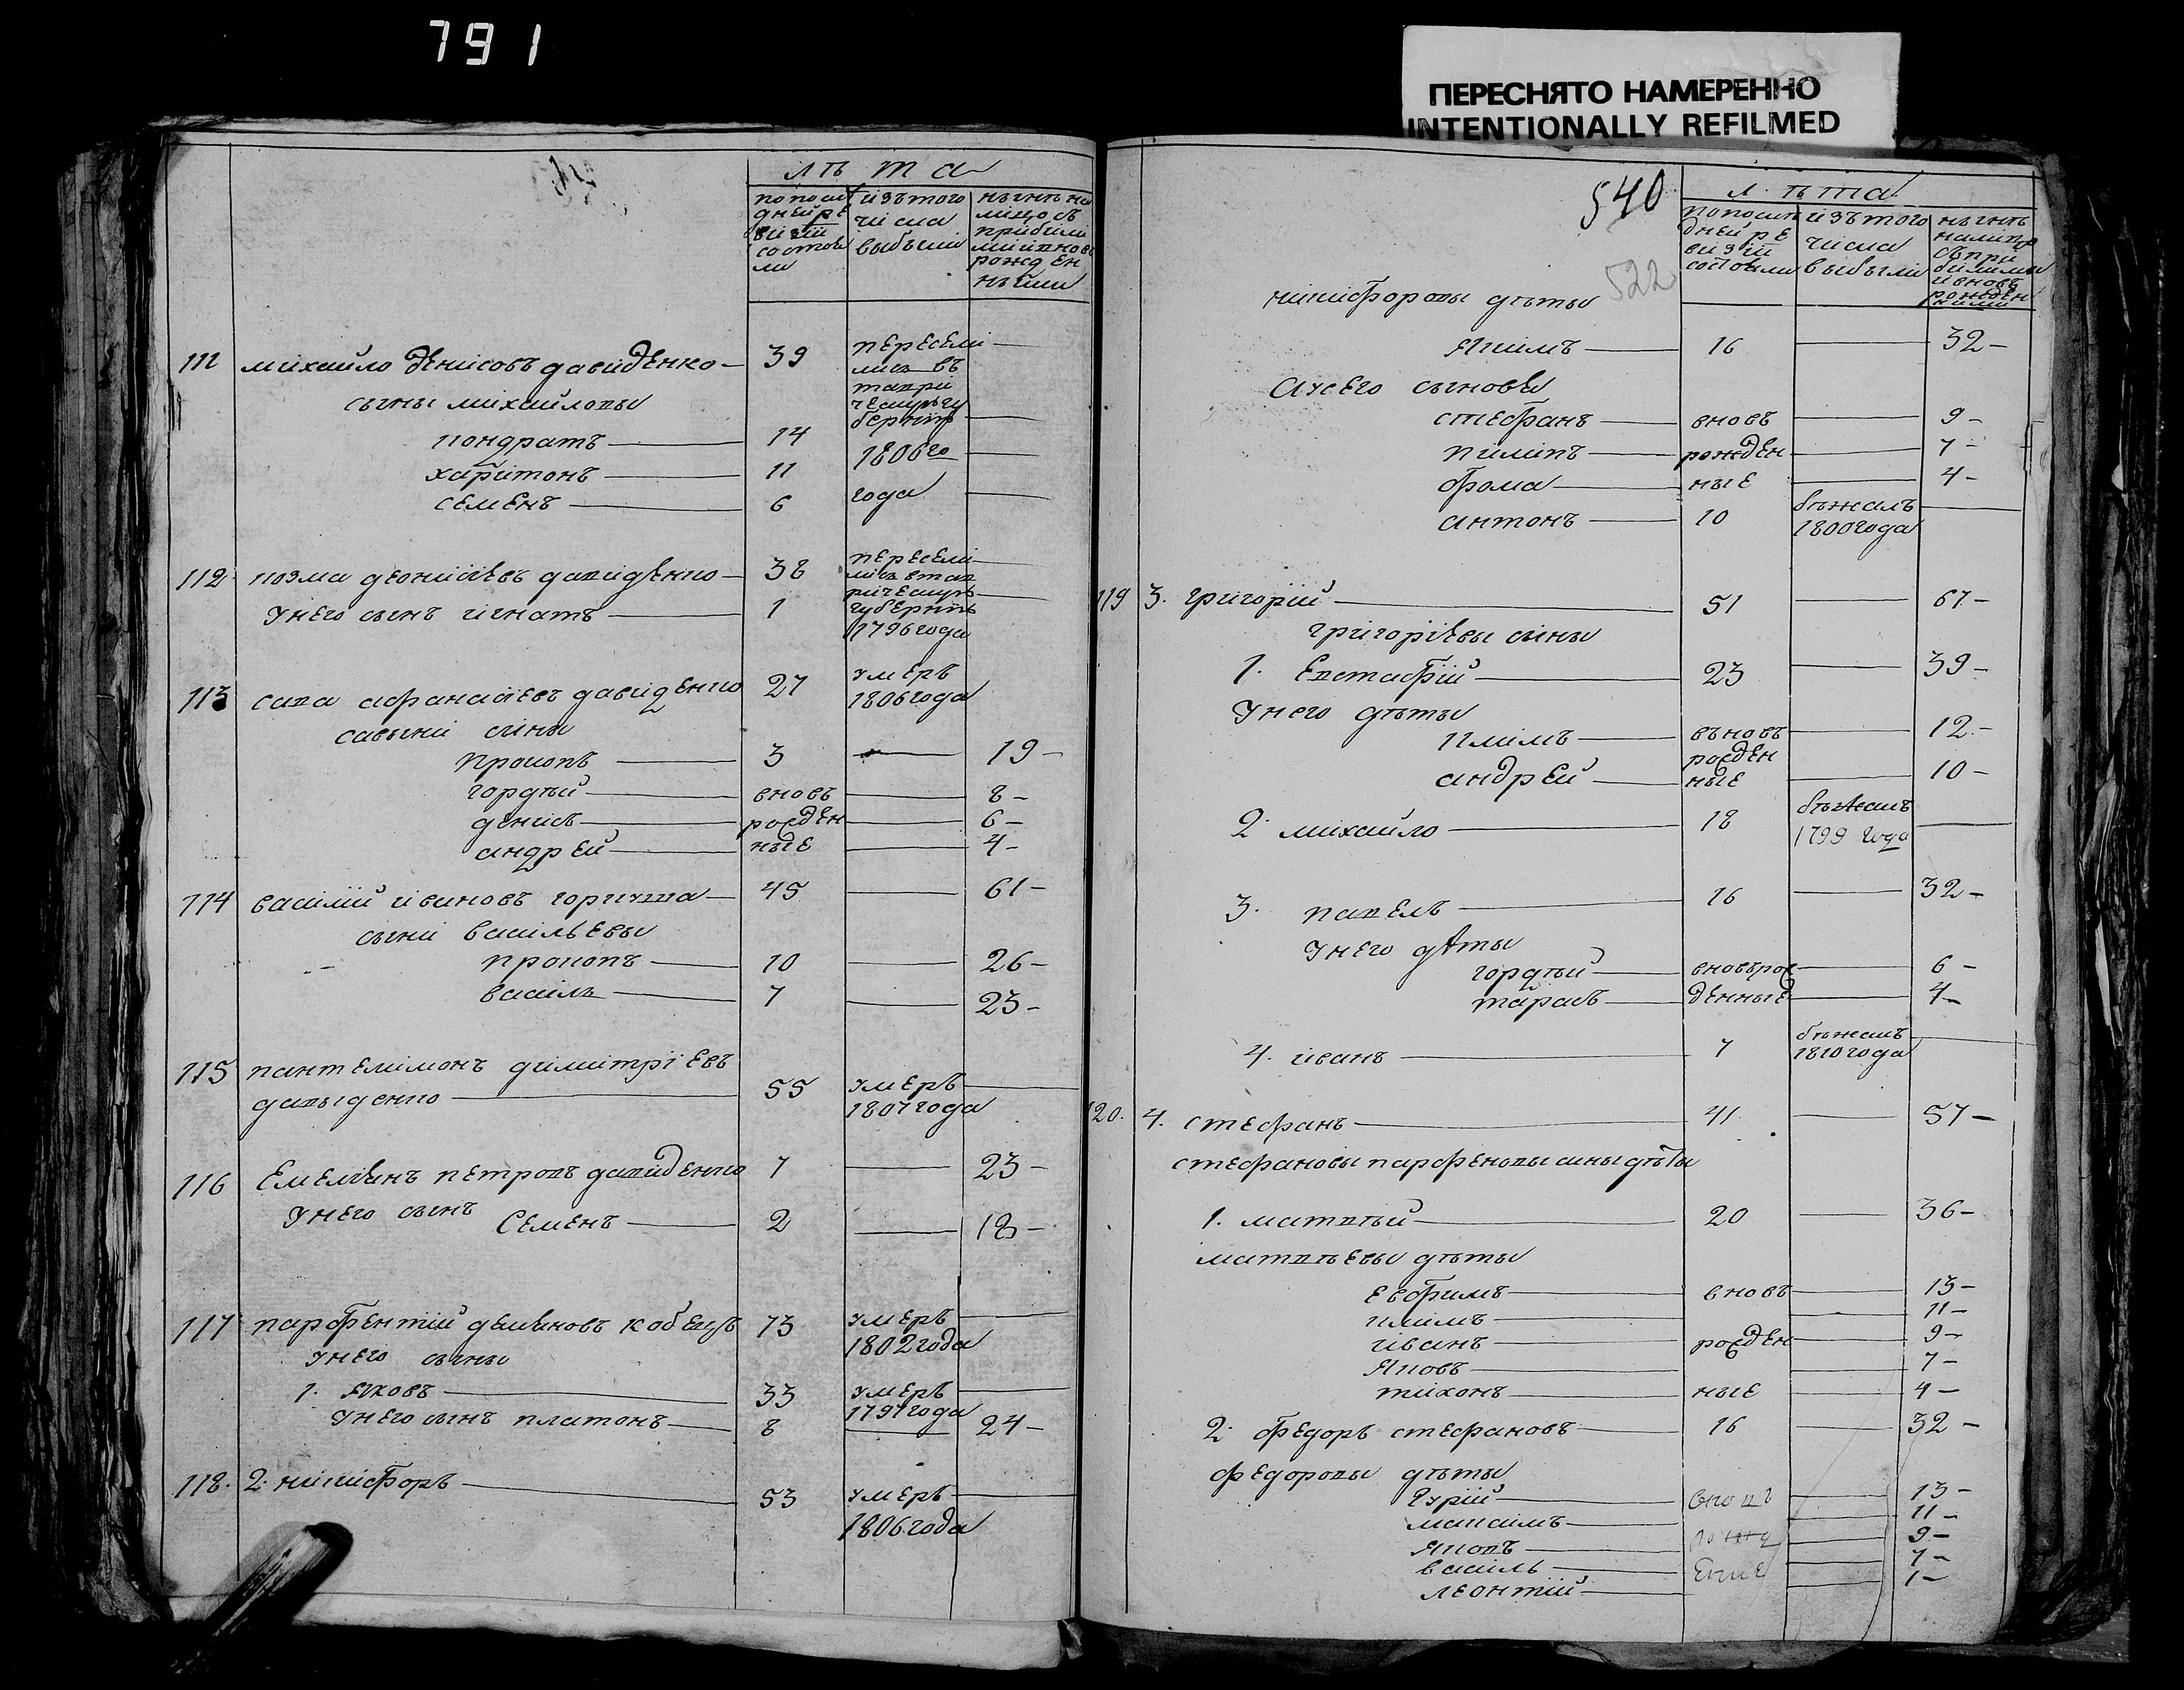 791
ПЕРЕСНЯТО НАМЕРЕННО
INTENTIONALLY REFILMED
лѣта
по послѣдней ревизіи состояли
изъ того числа выбыли
нынѣ на лицо съ прибылими и вновь рожденными
111 михайло денисовъ давиденко 39 переселились въ таврическую губернію
сыны михайловы
кондратъ 14 1806го
харитонъ 11
семенъ 6 года
112 козма деонисіевъ давиденко 38 переселились втаврическую губернію 1796 года
у него сынъ игнатъ 1
113 сава афанасіевъ давиденко 27 умеръ 1806 года
савыни сины
прокопъ 3 19
гордѣй вновъ 8
денисъ рожден 6
андрей ные 4
114 василій ивановъ 45 61
сыни васильевы
прокопъ 10 26
василь 7 23
115 пантелимонъ димитріевъ
давыденко 55 умеръ 1807 года
116 Емельянъ петровъ давиденко 7 23
у него сынъ Семенъ 2 18
117 парфентій демяновъ кобецъ 73 умеръ 1802 года
у него сыны
1. яковъ 33 умеръ 1797 года
у него сынъ платонъ 8 24
118. 2. никифоръ 53 умеръ 1806 года
540
522
лѣта
по послѣдней ревизіи состояли
изъ того числа выбыли
нынѣ налицо съ прибилими и вновь рожденными
никифоровы дѣты
якимъ 16 32
а у сего сыновя
стефанъ вновъ 9
пилипъ рожден 7
фома ные 4
антонъ 10 бѣжалъ 1800 года
119 3. григорій 51 67
григоріевы сины
1. Евстафій 23 39
У него дѣты
климъ вновъ 12
рожден
андрей ные 10
2. михайло 18 бѣжалъ 1799 года
3. павелъ 16 32
у него дѣты
гордѣй вновърож 6
тарасъ денные 4
4. иванъ 7 бѣжалъ 1810 года
120. 4. стефанъ 41 57
стефановы парфеновы сины дѣты
1. матвѣй 20 36
матвѣевы дѣты
евфимъ вновъ 13
климъ 11
иванъ рожден 9
яковъ 7
тихонъ ные 4
2. федоръ стефановъ 16 32
федоровы дѣты
гурій вновъ 13
максимъ 11
яковъ 9
василь 7
леонтій 1